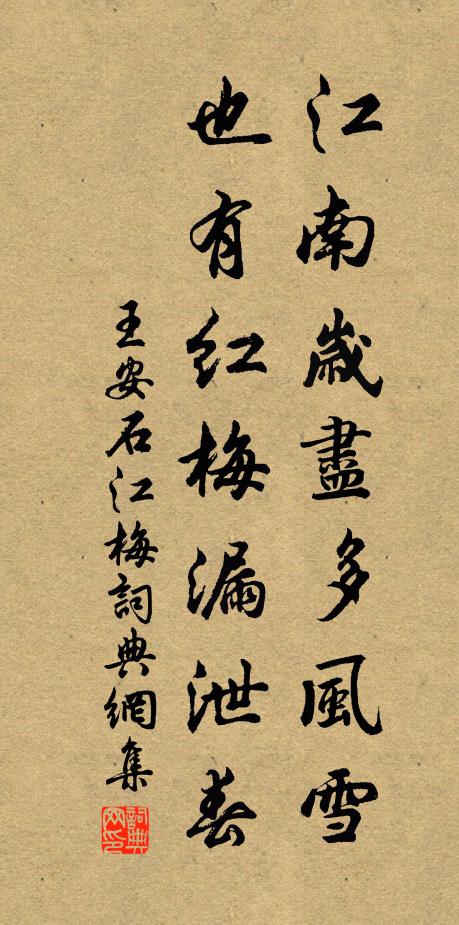 江南歲盡多風雪
也有紅梅漏泄春
王安石江梅詞典網集
詞典網印